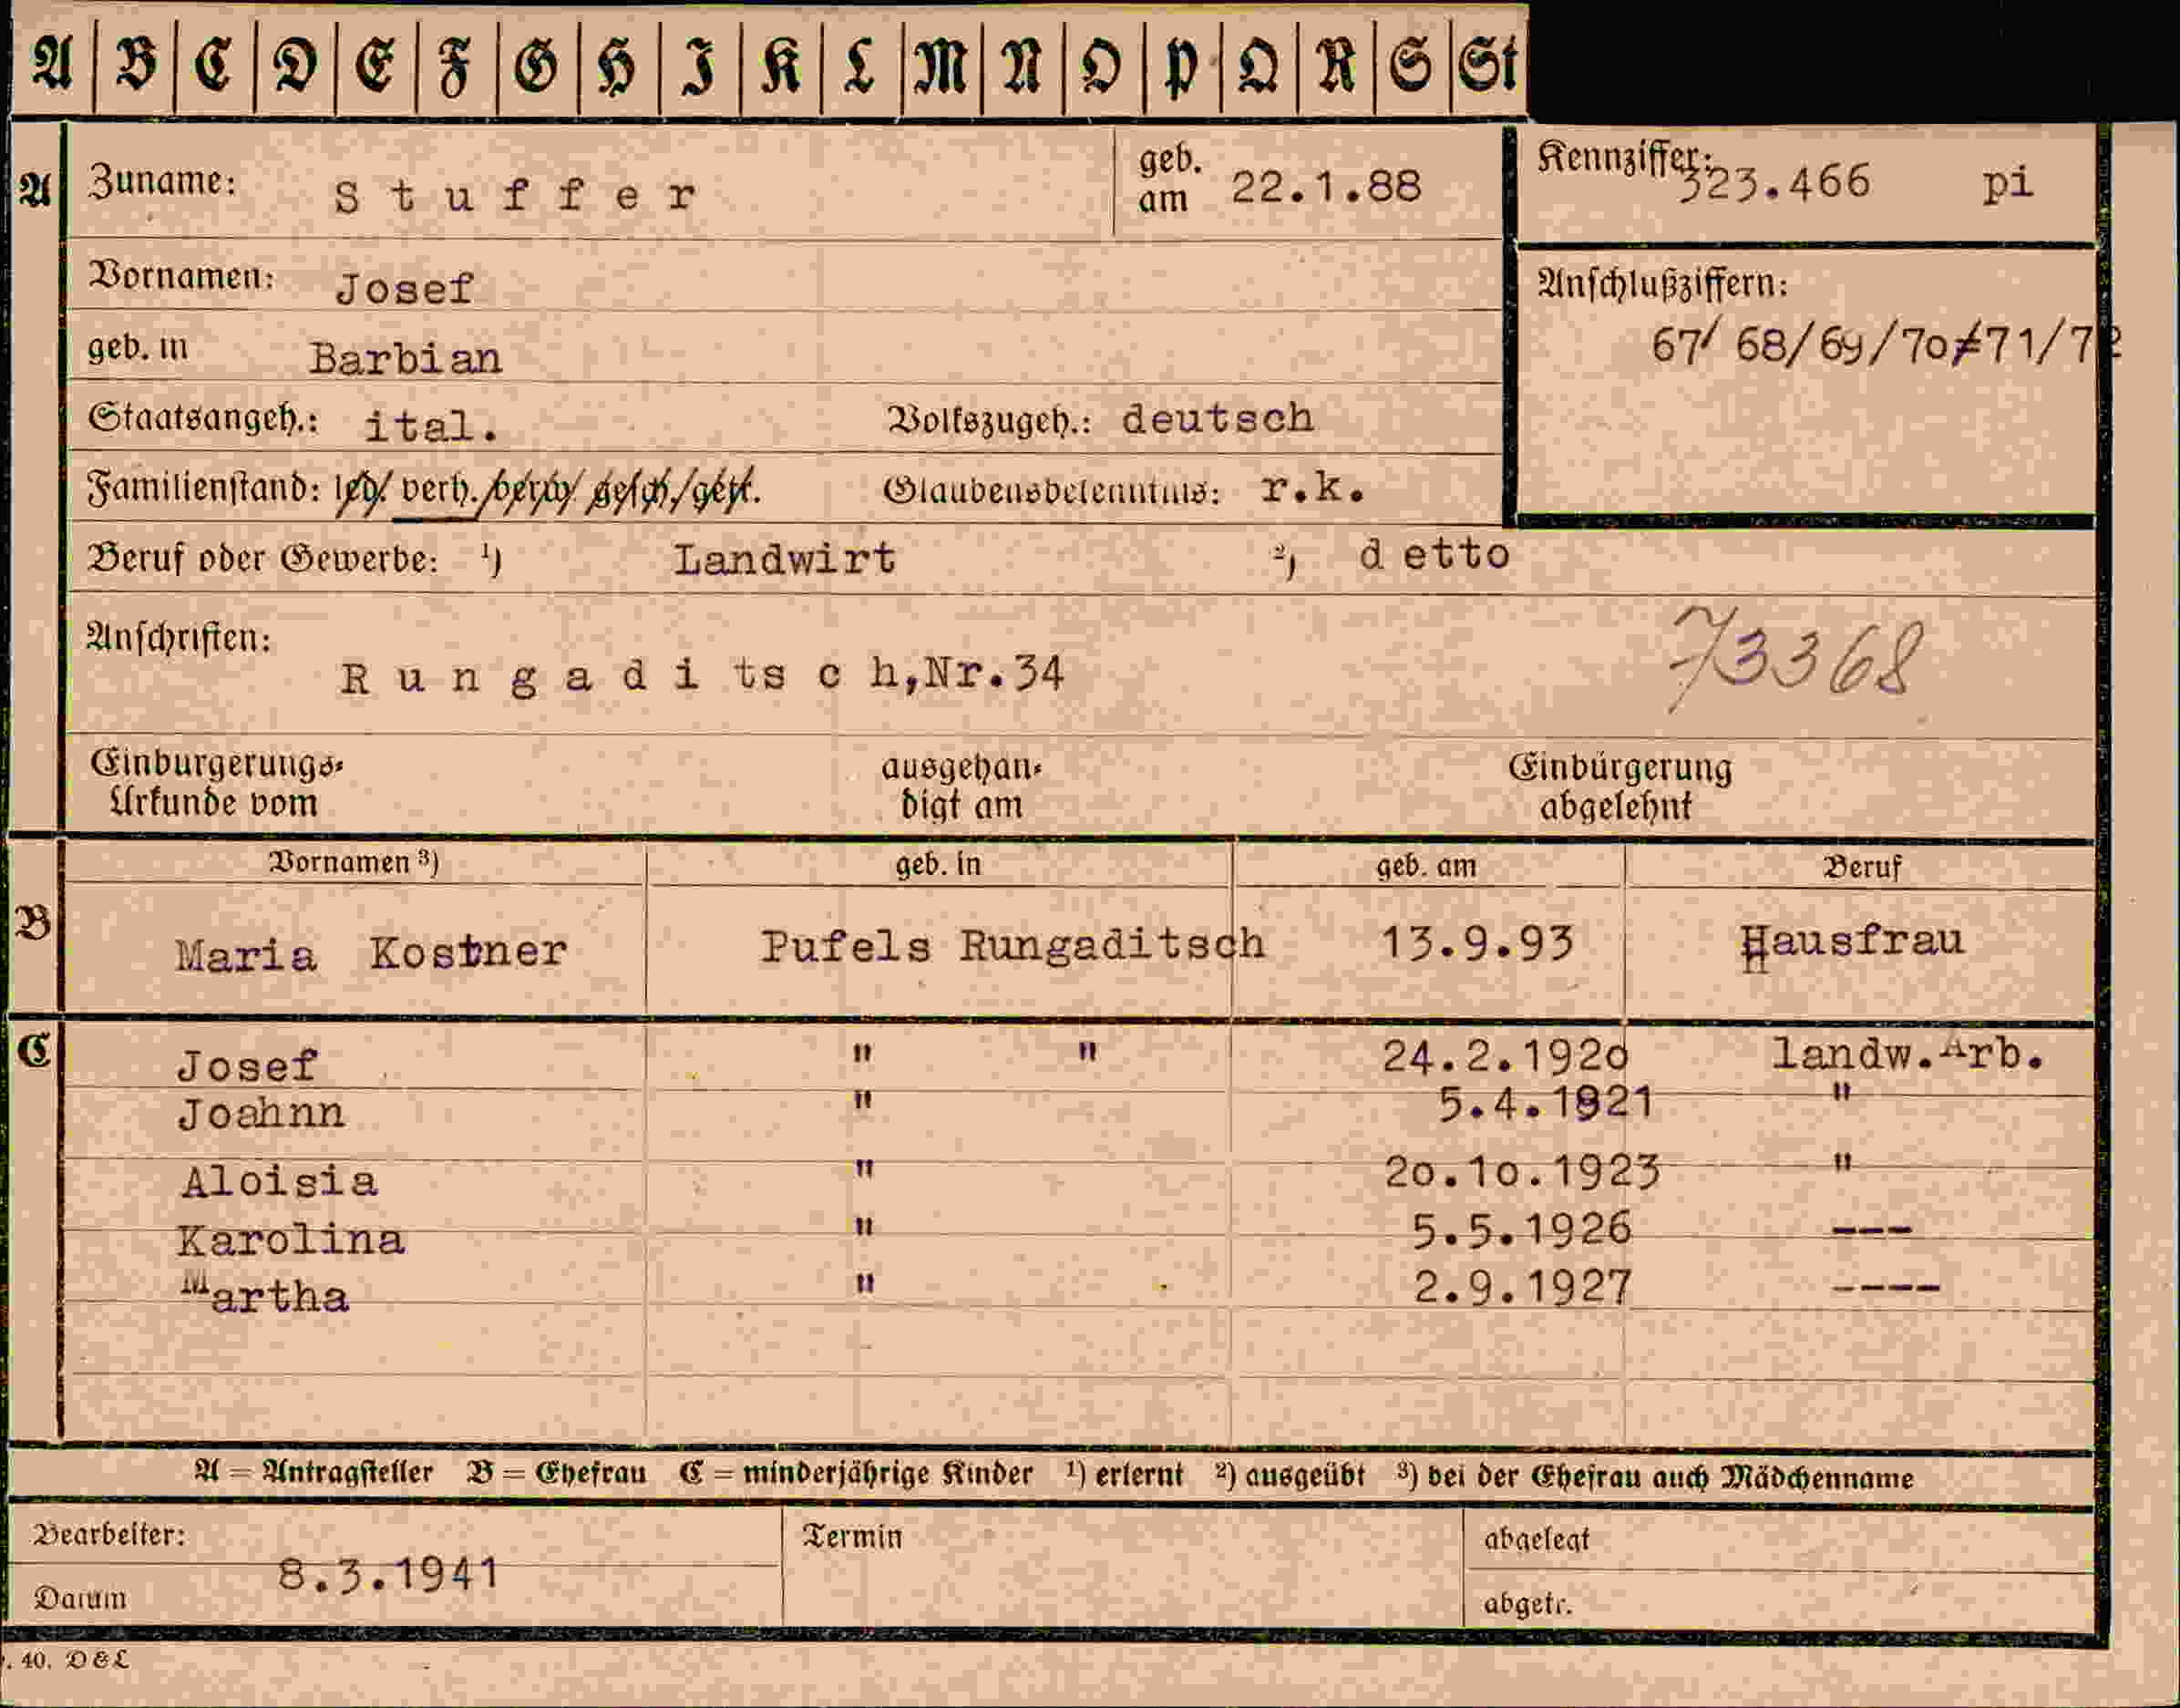 A B C D E F G H I K L M N O P Q R S St
A Zuname: Stuffer geb. am 22.1.88 Kennziffer: 323.466 pi
Vornamen: Josef Anschlußziffern:
geb. in Barbian 67/ 68/69/70/71/72
Staatsangeh.: ital. Volkszugeh.: deutsch
Familienstand: led./ verh./verw./ gesch./getr. Glaubensbekenntnis: r.k.
Beruf oder Gewerbe: ¹) Landwirt ²) d etto
Anschriften: 73368
Rungaditsch,Nr.34
Einbürgerungs- ausgehän- Einbürgerung
Urkunde vom digt am abgelehnt
Vornamen ³) geb. in geb. am Beruf
B Maria Kostner Pufels Rungaditsch 13.9.93 Hausfrau
C Josef " " 24.2.1920 landw.Arb.
Joahnn " 5.4.1921 "
Aloisia " 20.10.1923 "
Karolina " 5.5.1926 ---
Martha " 2.9.1927 ----
A = Antragsteller B = Ehefrau C = minderjährige Kinder ¹) erlernt ²) ausgeübt ³) bei der Ehefrau auch Mädchenname
Bearbeiter: Termin abgelegt
8.3.1941
Datum abgetr.
. 40. D&L